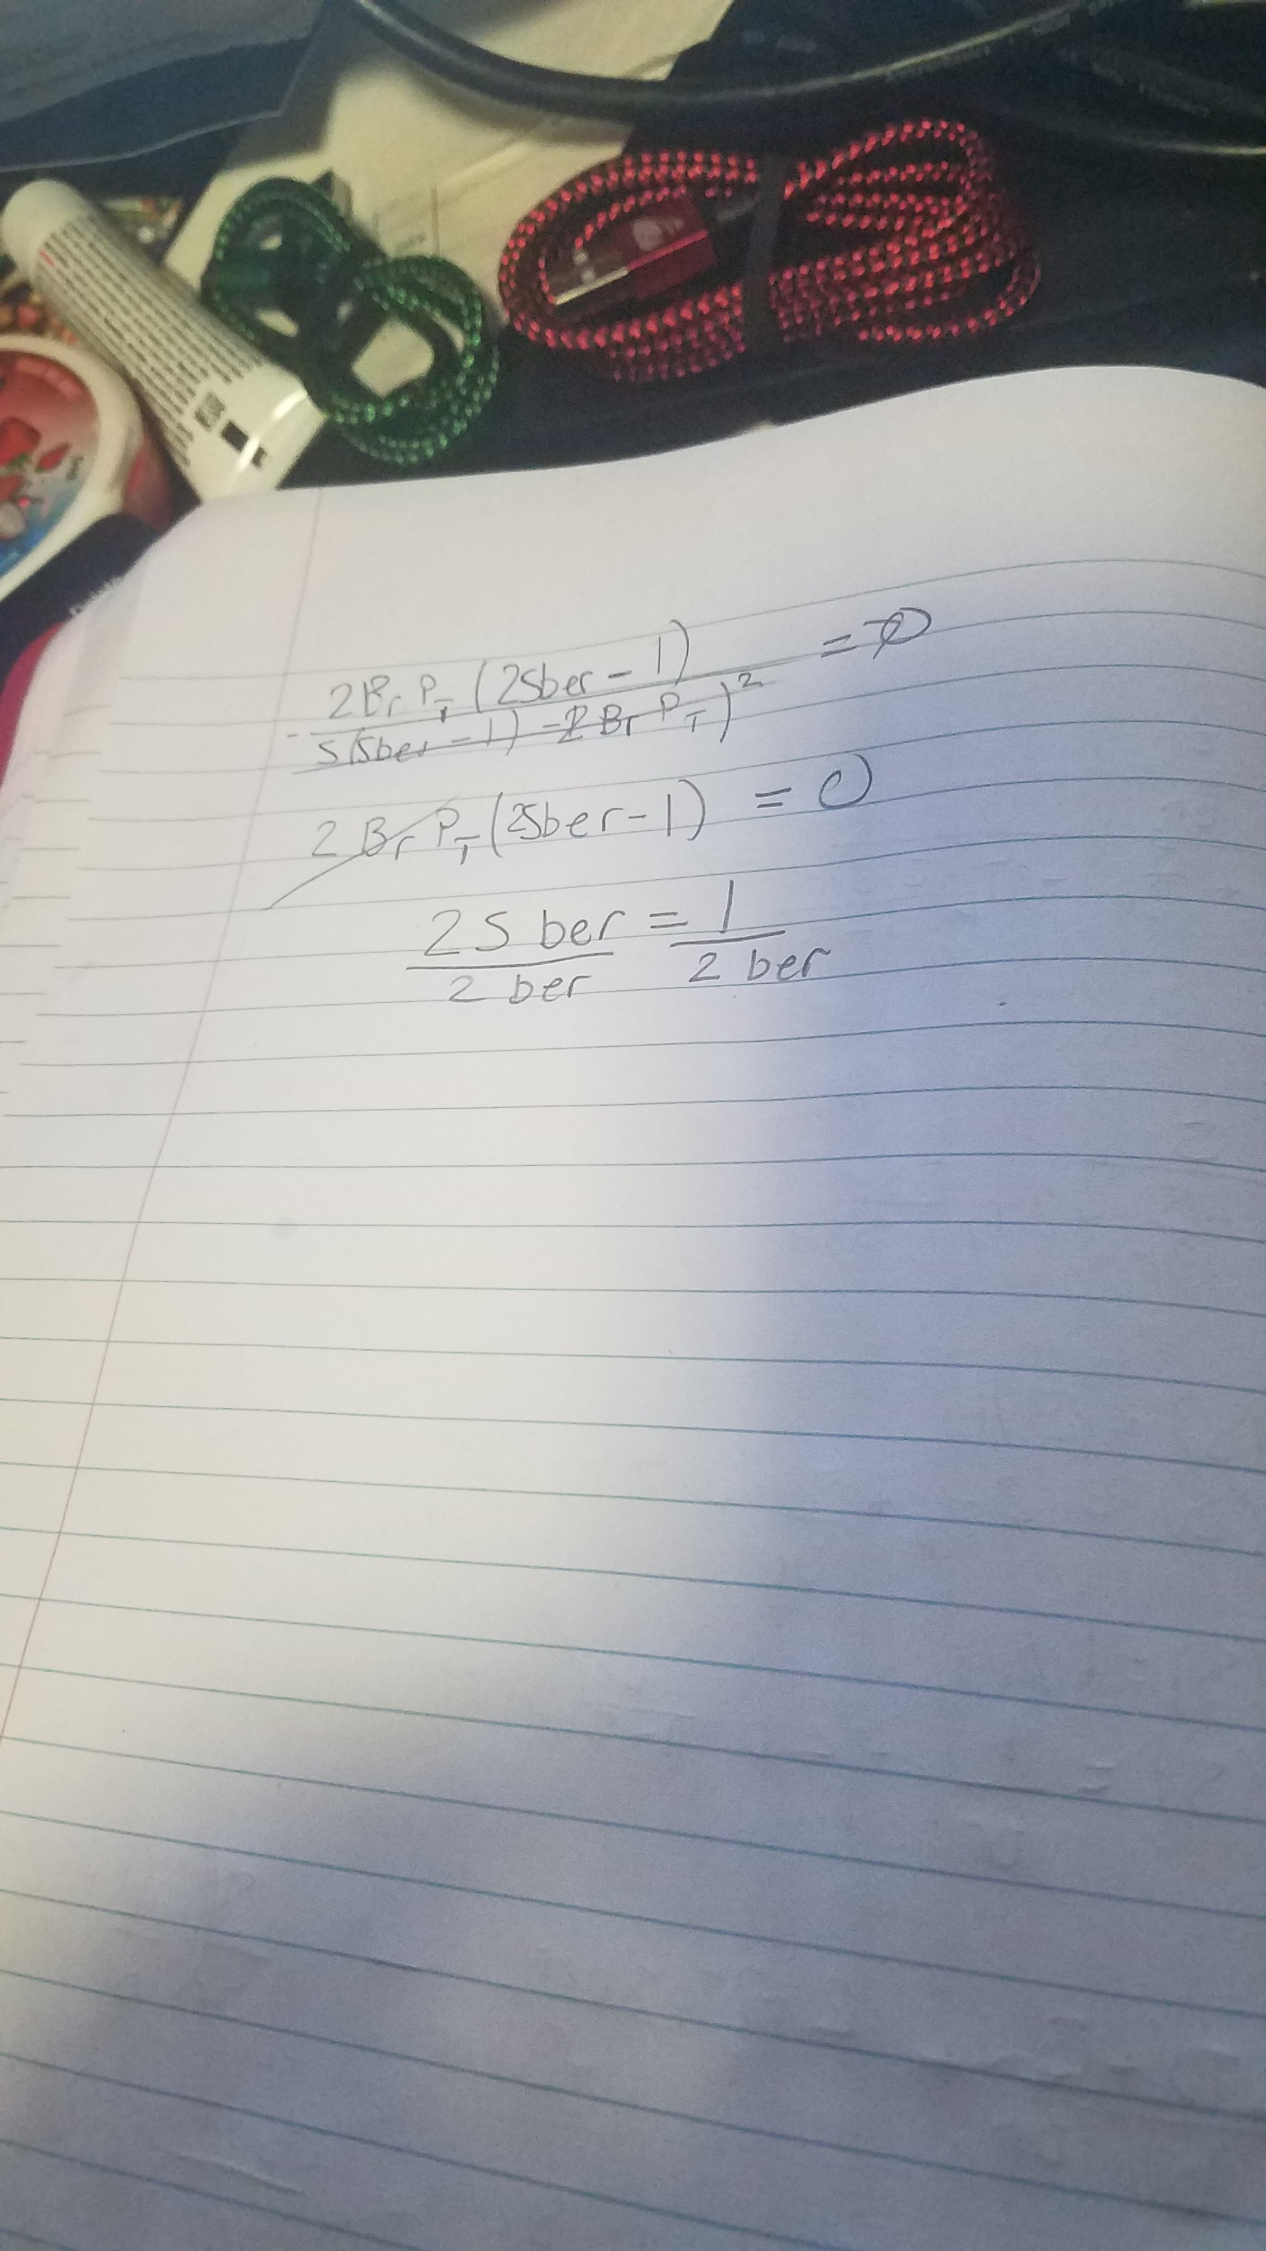 2Br PT (2Sber - 1) = 0
- S(Sber - 1) - 2 Br PT)²
2 Br PT (2Sber - 1) = 0
2 S ber = 1
2 ber 2 ber